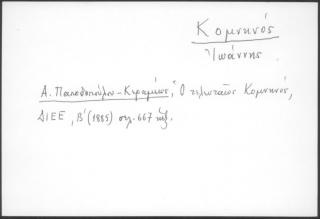 Κομνηνός
Ἰωάννης
Α. Παπαδοπούλου-Κεραμέως, Ὁ τελευταῖος Κομνηνός,
ΔΙΕΕ, Β' (1885) σελ. 667 κἑξ.